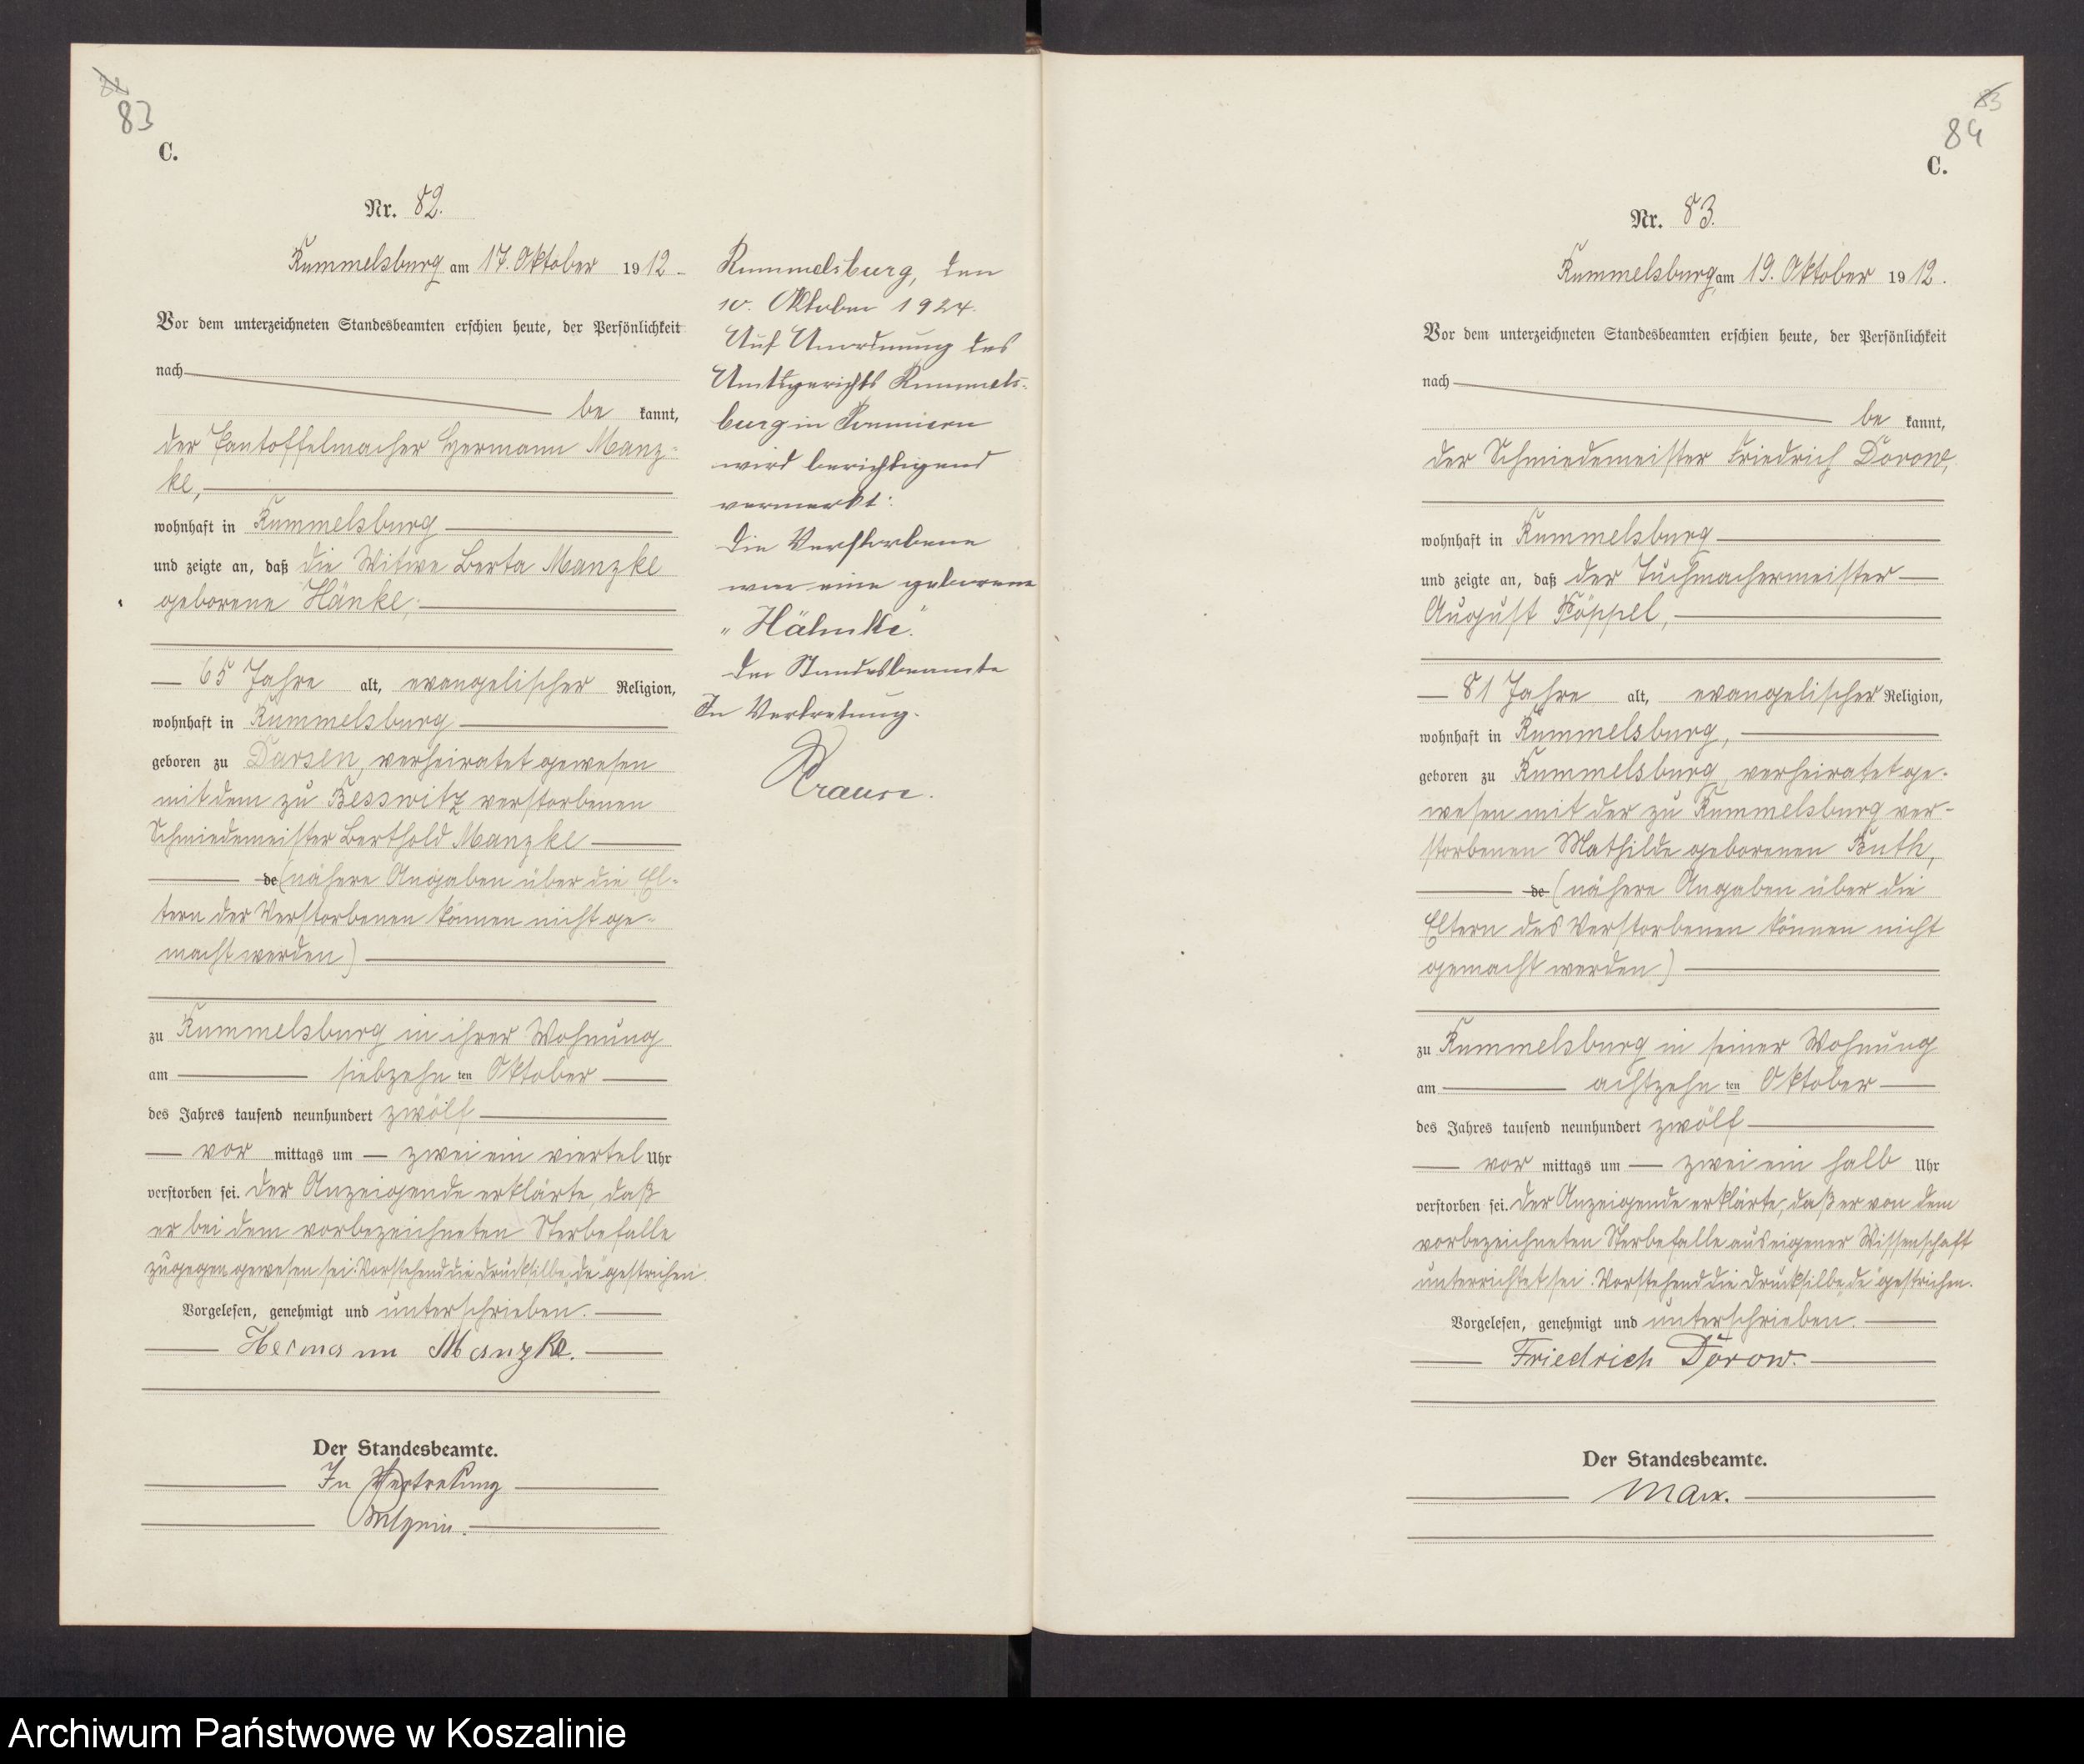 83
C.
Nr. 82.
Rummelsburg am 17. Oktober 1912.
Vor dem unterzeichneten Standesbeamten erschien heute, der Persönlichkeit
nach
be kannt,
der Pantoffelmacher Hermann Manz-
ke,
wohnhaft in Rummelsburg
und zeigte an, daß die Witwe Berta Manzke
geborene Hänke,
65 Jahre alt, evangelischer Religion,
wohnhaft in Rummelsburg
geboren zu Darsen, verheiratet gewesen
mit dem zu Besswitz verstorbenen
Schmiedemeister Berthold Manzke
de (nähere Angaben über die El-
tern der Verstorbenen können nicht ge-
macht werden)
zu Rummelsburg in ihrer Wohnung
am siebzehn ten Oktober
des Jahres tausend neunhundert zwölf
vor mittags um zwei ein viertel Uhr
verstorben sei. Der Anzeigende erklärte, daß
er bei dem vorbezeichneten Sterbefalle
zugegen gewesen sei. Vorstehend die Drucksilbe „de" gestrichen.
Vorgelesen, genehmigt und unterschrieben.
Hermann Manzke.
Der Standesbeamte.
In Vertretung
Rummelsburg, den
10. Oktober 1924.
Auf Anordnung des
Amtsgerichts Rummels-
burg in Pommern
wird berichtigend
vermerkt:
Die Verstorbene
war eine geborene
„Hähnke".
Der Standesbeamte
In Vertretung.
Krause.
83
84
C.
Nr. 83.
Rummelsburg am 19. Oktober 1912.
Vor dem unterzeichneten Standesbeamten erschien heute, der Persönlichkeit
nach
be kannt,
der Schmiedemeister Friedrich Dorow,
wohnhaft in Rummelsburg
und zeigte an, daß der Tuchmachermeister
August Pöppel,
81 Jahre alt, evangelischer Religion,
wohnhaft in Rummelsburg,
geboren zu Rummelsburg, verheiratet ge-
wesen mit der zu Rummelsburg ver-
storbenen Mathilde geborenen Buth,
de (nähere Angaben über die
Eltern des Verstorbenen können nicht
gemacht werden)
zu Rummelsburg in seiner Wohnung
am achtzehn ten Oktober
des Jahres tausend neunhundert zwölf
vor mittags um zwei ein halb Uhr
verstorben sei. Der Anzeigende erklärte, daß er von dem
vorbezeichneten Sterbefalle aus eigener Wissenschaft
unterrichtet sei. Vorstehend die Drucksilbe „de" gestrichen.
Vorgelesen, genehmigt und unterschrieben.
Friedrich Dorow.
Der Standesbeamte.
Marx.
Archiwum Państwowe w Koszalinie